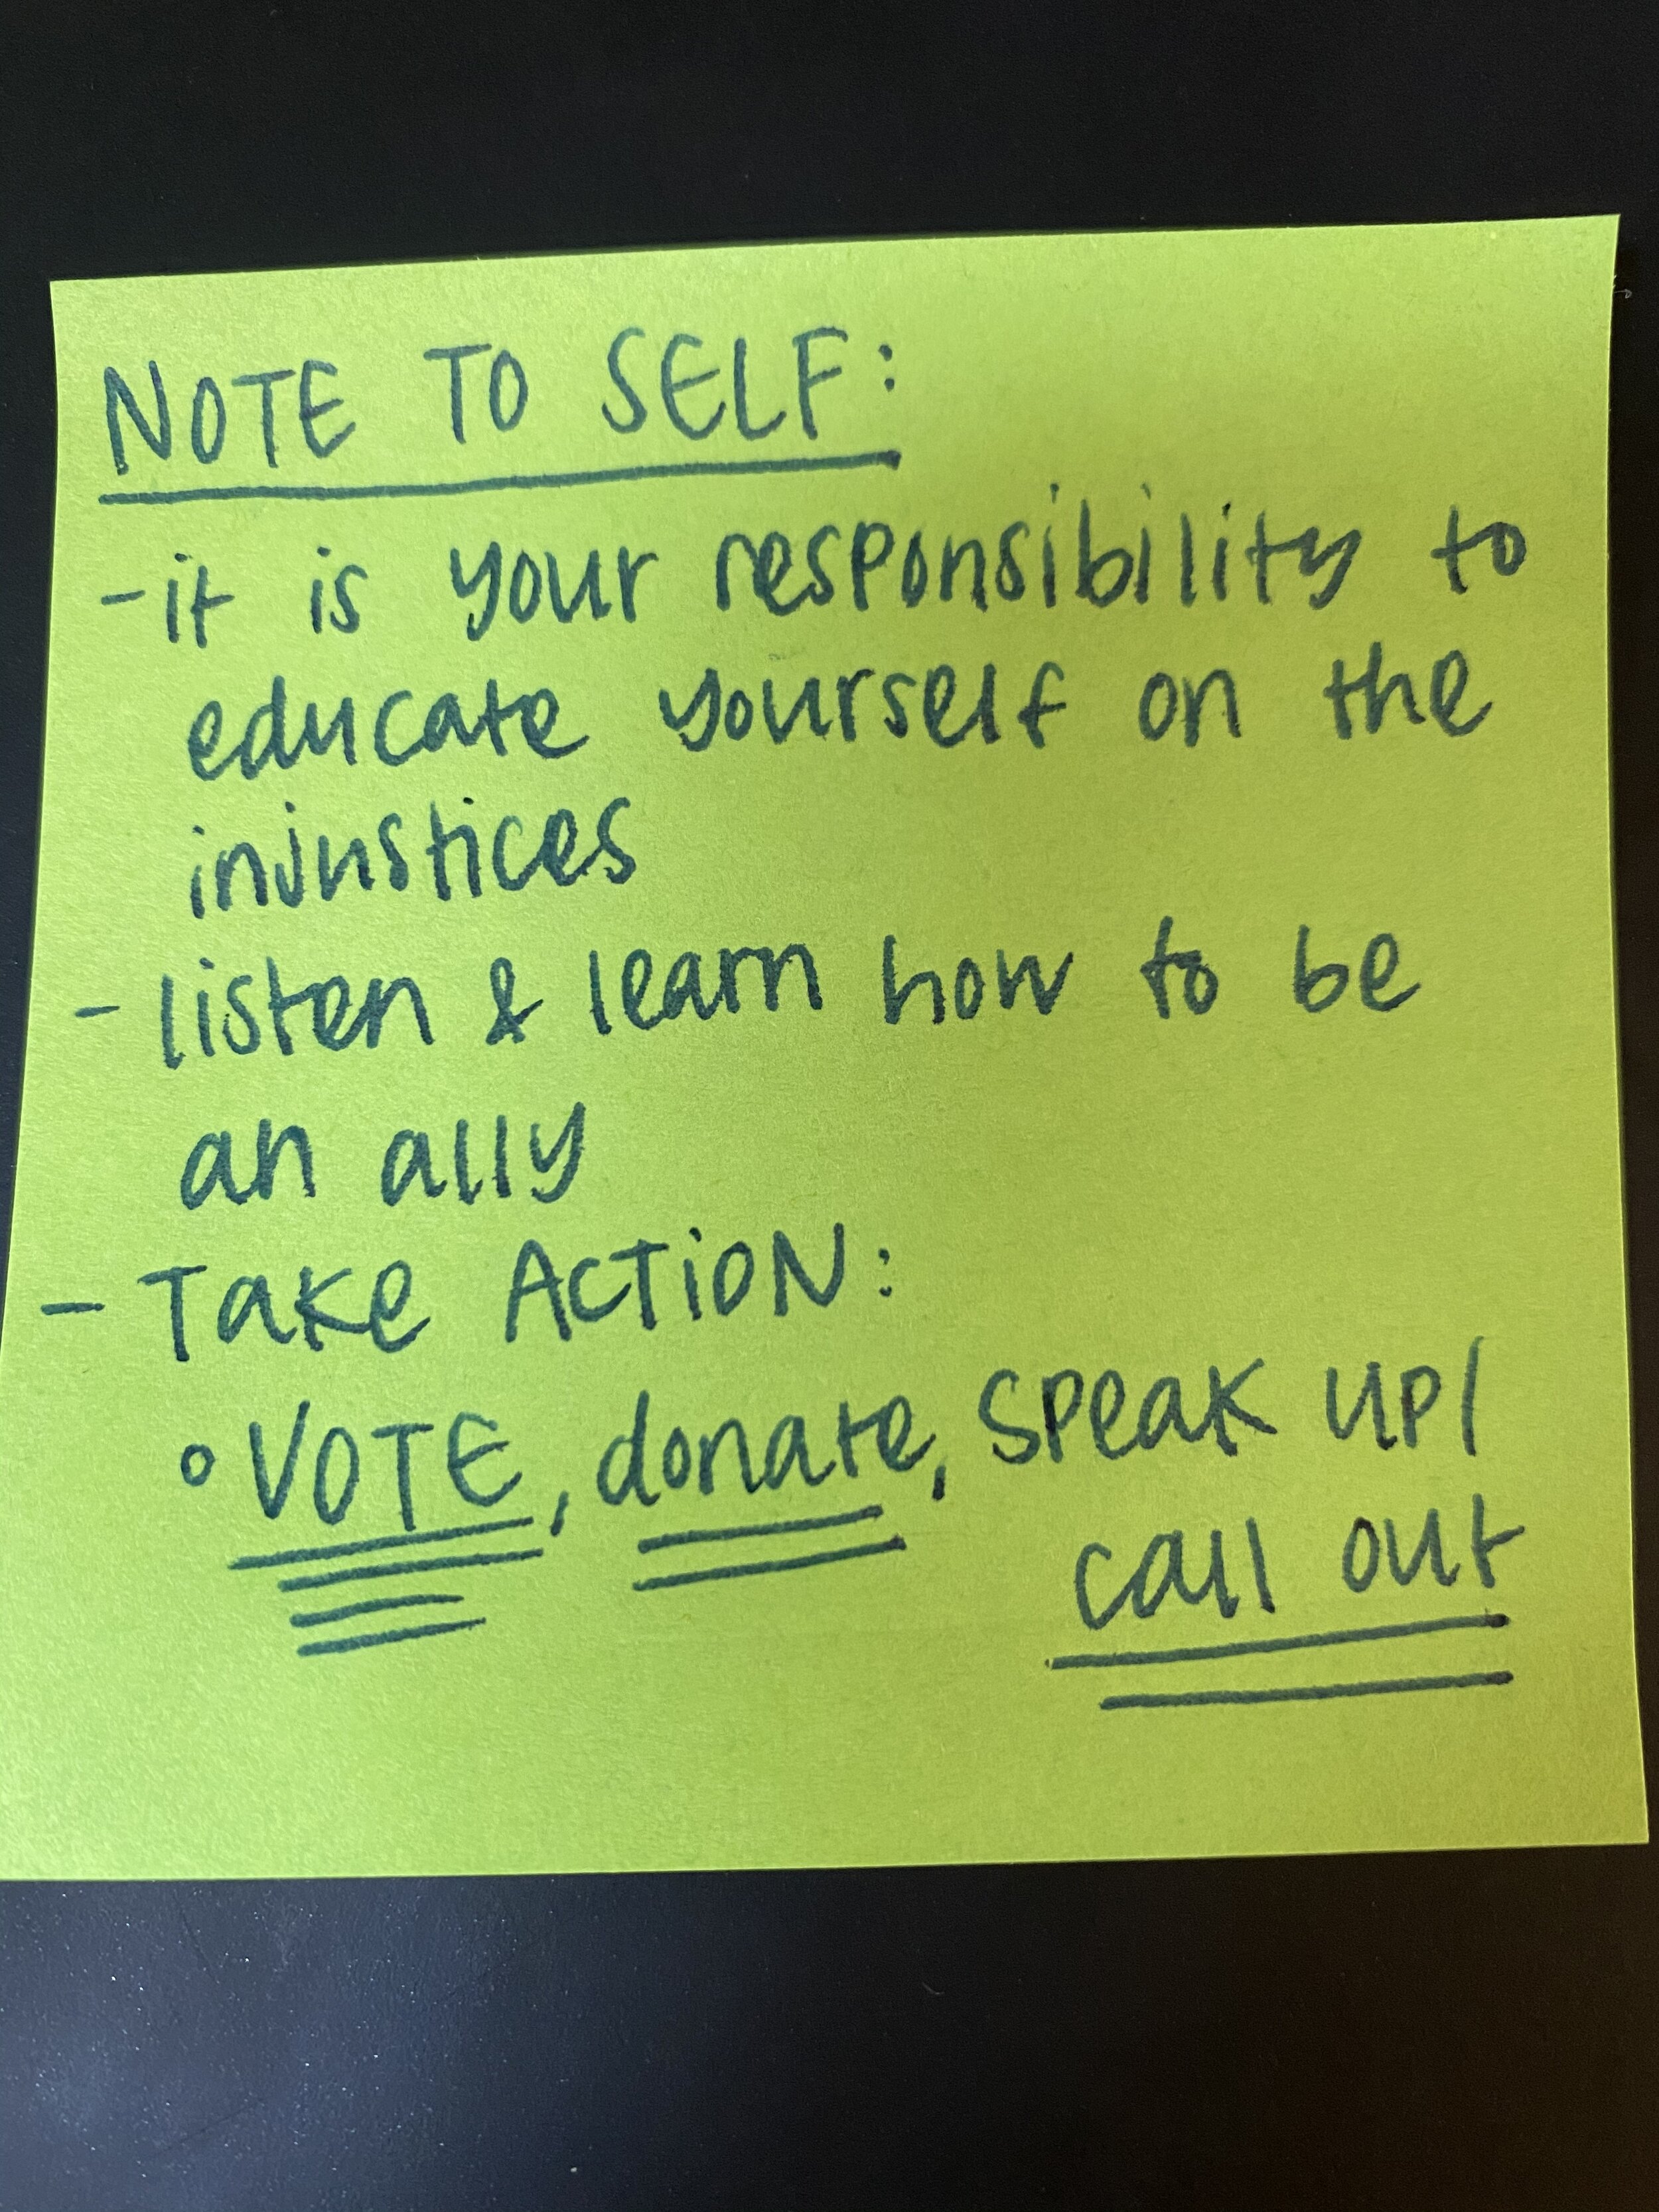 NOTE TO SELF:
- it is your responsibility to
educate yourself on the
injustices
- listen & learn how to be
an ally
- Take ACTiON:
° VOTE, donate, speak up/
call out